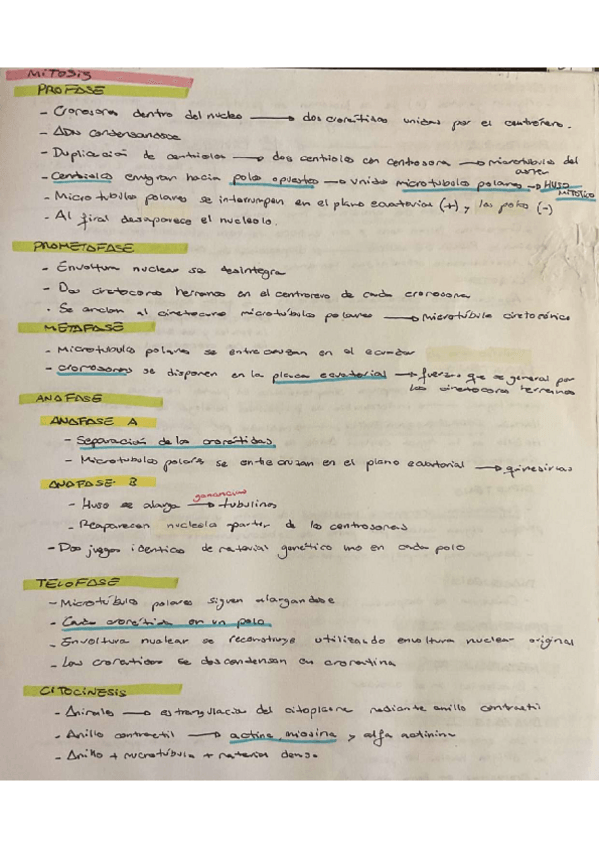 MITOSIS
PROFASE
- Cromosomas dentro del nucleo → dos cromátidas unidas por el centrómero.
- ADN condensandose
- Duplicación de centriolos → dos centriolos con centrosoma → microtúbulo del aster
- Centriolos emigran hacia polos opuestos → unidos microtúbulos polares → HUSO MITÓTICO
- Microtubulos polares se interrumpen en el plano ecuatorial (+) y los polos (-)
- Al final desaparece el nucleolo.
PROMETAFASE
- Envoltura nuclear se desintegra
- Dos cinetocoros hermanos en el centromero de cada cromosoma
- Se anclan al cinetocoro microtúbulos polares → microtúbulo cinetocórico
METAFASE
- Microtubulos polares se entrecruzan en el ecuador
- cromosomas se disponen en la placa ecuatorial → fuerzas que se generan por los cinetocoros hermanos
ANAFASE
ANAFASE A
- Separación de las cromátidas
- Microtubulos polares se entrecruzan en el plano ecuatorial → quinesinas
ANAFASE B
- Huso se alarga → tubulinas
- Reaparecen nucleolo partir de los centrosomas
- Dos juegos identicos de material genético uno en cada polo
TELOFASE
- Microtúbulos polares siguen alargandose
- Cada cromátida en un polo
- Envoltura nuclear se reconstruye utilizando envoltura nuclear original
- Las cromatidas se descondensan en cromatina
CITOCINESIS
- Animales → estrangulación del citoplasma mediante anillo contractil
- Anillo contractil → actina, miosina y alfa actinina
- Anillo + microtúbulo + material denso